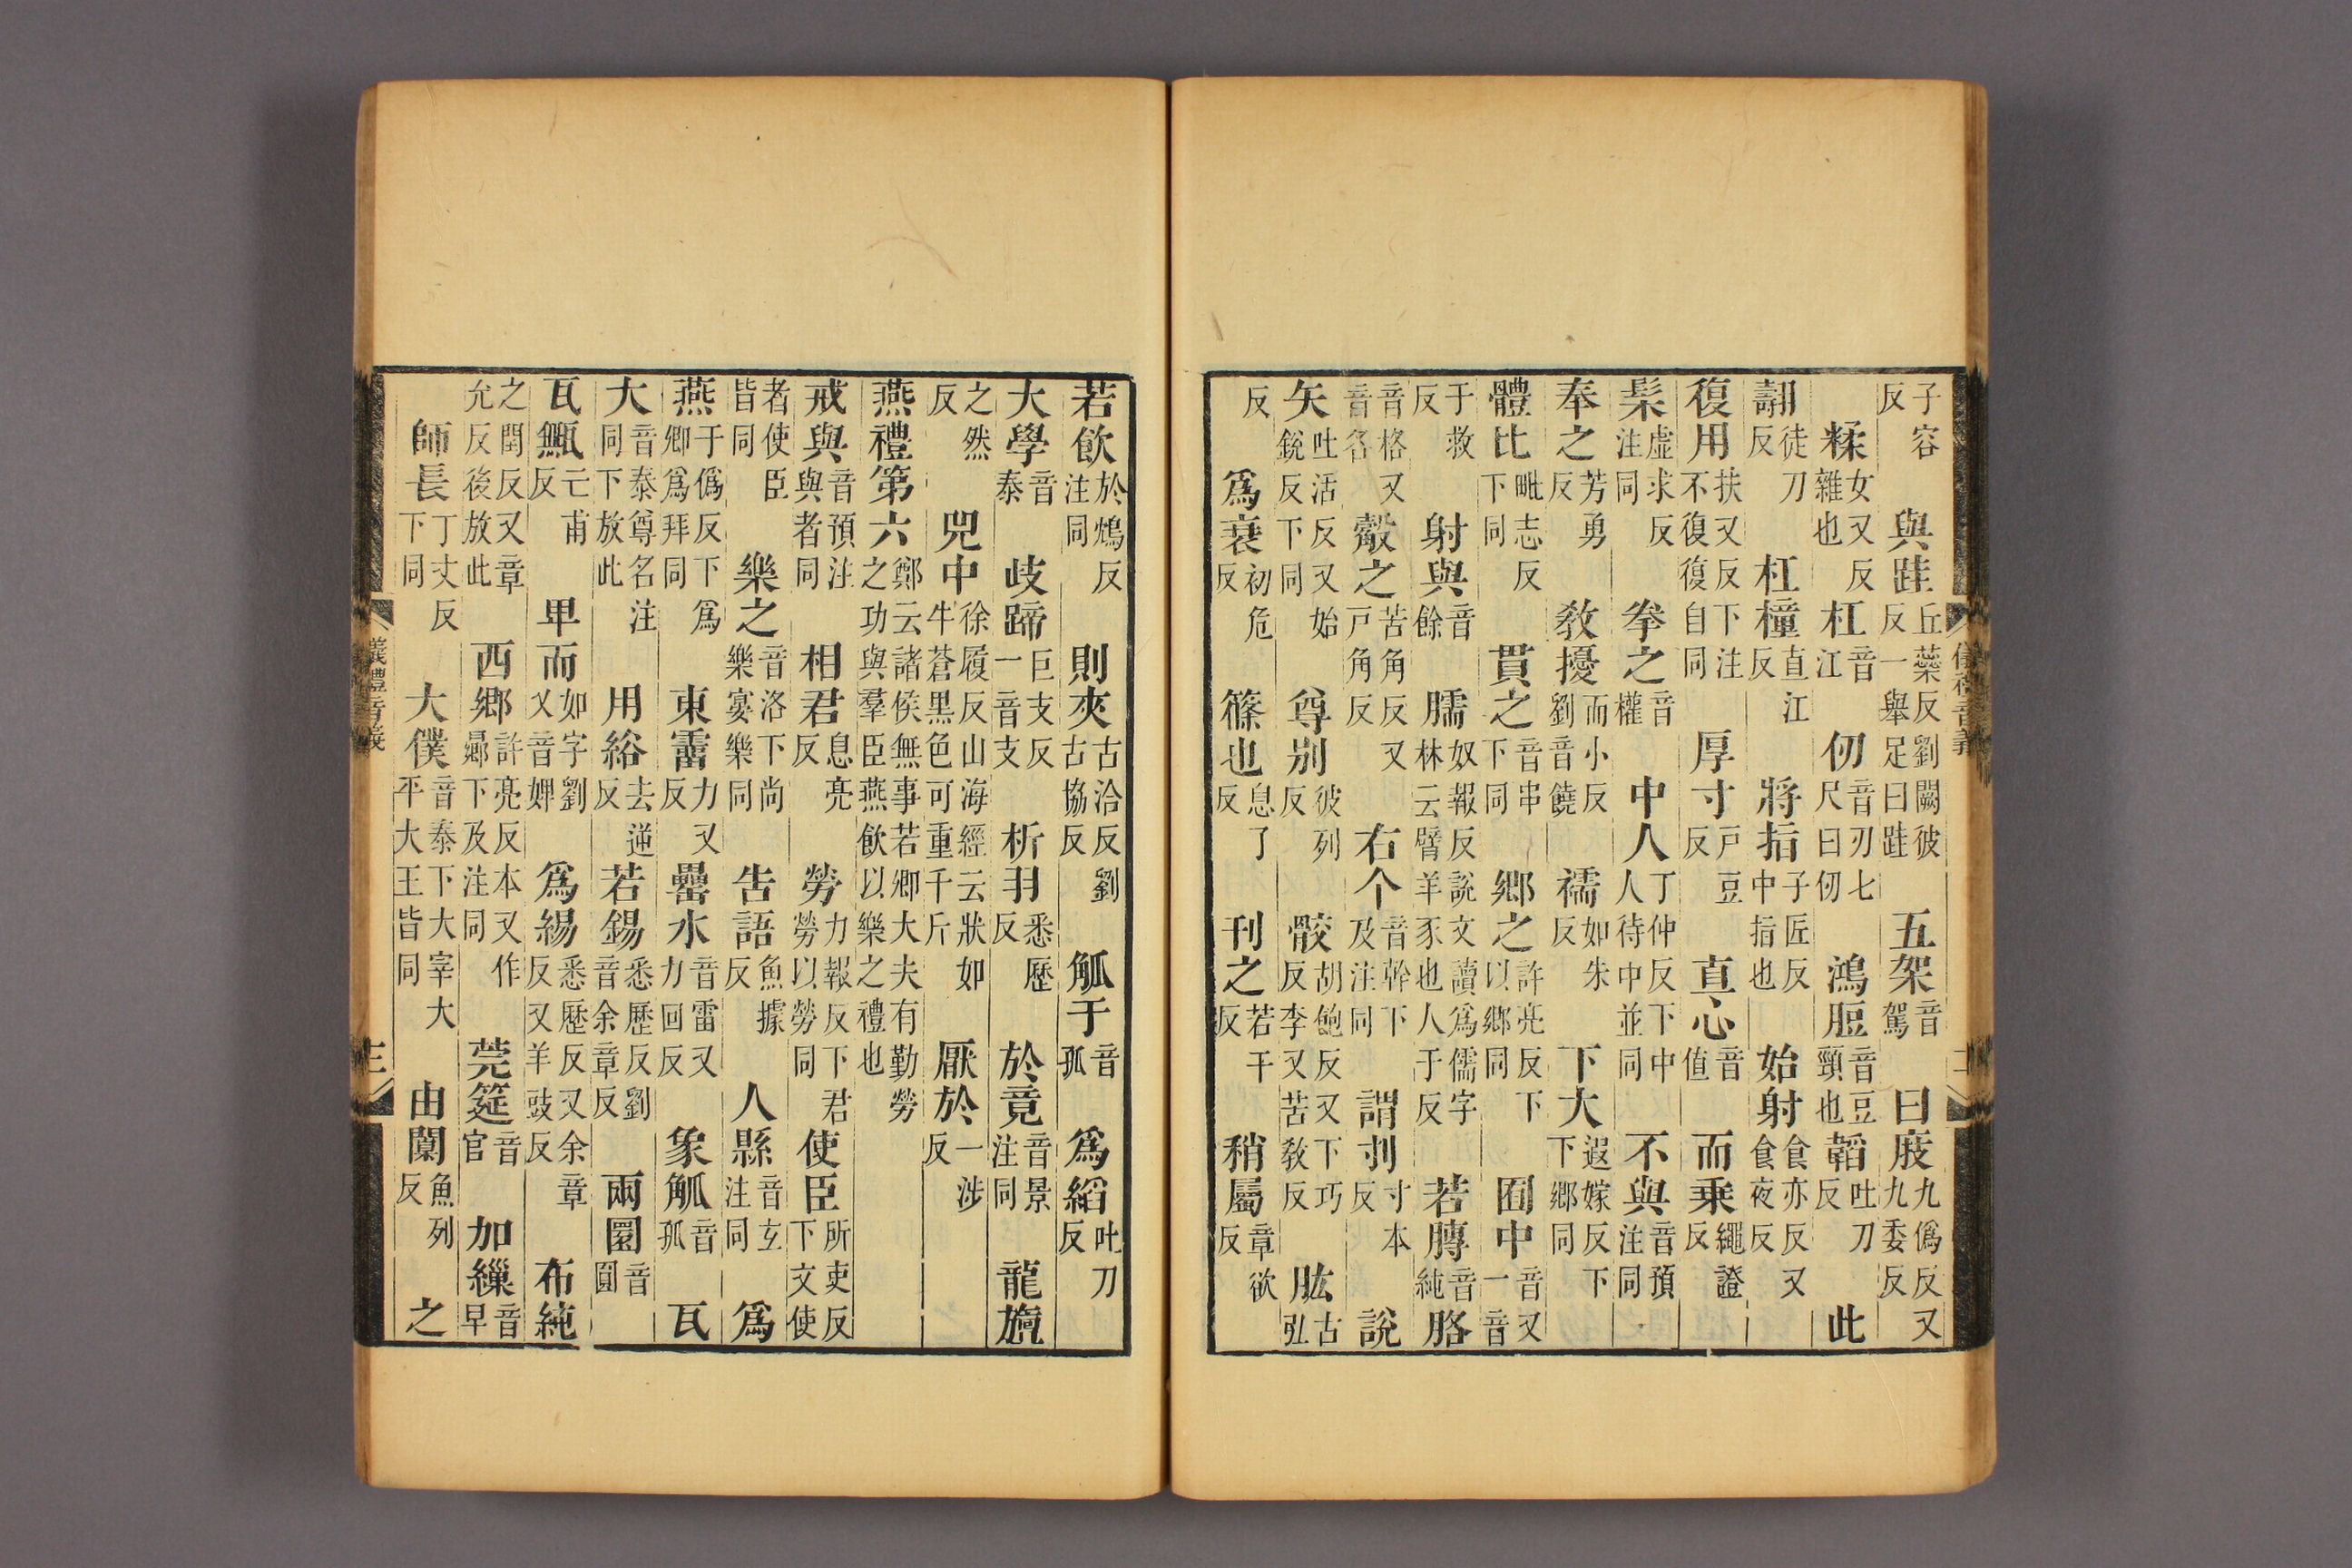 子容反 與跬丘蘂反劉闕彼反一舉足曰跬 五架音駕 曰庪九偽反又九委反
糅女又反雜也 杠音江 仞音刃七尺曰仞 鴻脰音豆頸也 韜吐刀反 此
翿徒刀反 杠橦直江反 將指子匠反中指也 始射食亦反又食夜反
復用扶又反下注不復復自同 厚寸戶豆反 直心音值 而乘繩證反
髹虛求反注同 拳之音權 中人丁仲反下中人待中並同 不與音預注同
奉之芳勇反 敎擾而小反劉音饒 襦如朱反 下大遐嫁反下下鄉同
體比毗志反下同 貫之音串下同 鄉之許亮反下以鄉同 囿中音又一音
于救反 射與音餘 臑奴報反說文讀爲儒字林云臂羊豕也人于反 若膊音純 胳
音格又音各 觳之苦角反又戶角反 右个音幹下及注同 謂刌寸本反 說
矢吐活反又始銳反下同 尊別彼列反 骹胡飽反又下巧反李又苦敎反 肱古弘
反 爲衰初危反 篠也息了反 刊之若干反 稍屬章欲反
儀禮音義
若飲於鴆反注同 則夾古洽反劉古協反 觚于音孤 爲縚吐刀反
大學音泰 歧蹄巨支反一音支 析羽悉歷反 於竟音景注同 龍旜
之然反 兕中徐履反山海經云狀如牛蒼黑色可重千斤 厭於一涉反
燕禮第六鄭云諸侯無事若卿大夫有勤勞之功與羣臣燕飲以樂之禮也
戒與音預注與者同 相君息亮反 勞力報反下君勞以勞同 使臣所吏反下文使
者使臣皆同 樂之音洛下尚樂宴樂同 告語魚據反 人縣音玄注同 爲
燕于僞反下爲卿爲拜同 東霤力又反 罍水音雷又力回反 象觚音孤 瓦
大音泰尊名注同下放此 用綌去逆反 若錫悉歷反劉音余章反 兩圜音圓
瓦甒亡甫反 卑而如字劉又音婢 爲緆悉歷反又余章反又羊豉反 布純
之閏反又章允反後放此 西鄉許亮反本又作曏下及注同 莞筵音官 加繅音早
師長丁丈反下同 大僕音泰下大宰大平大王皆同 由闑魚列反 之
儀禮音義